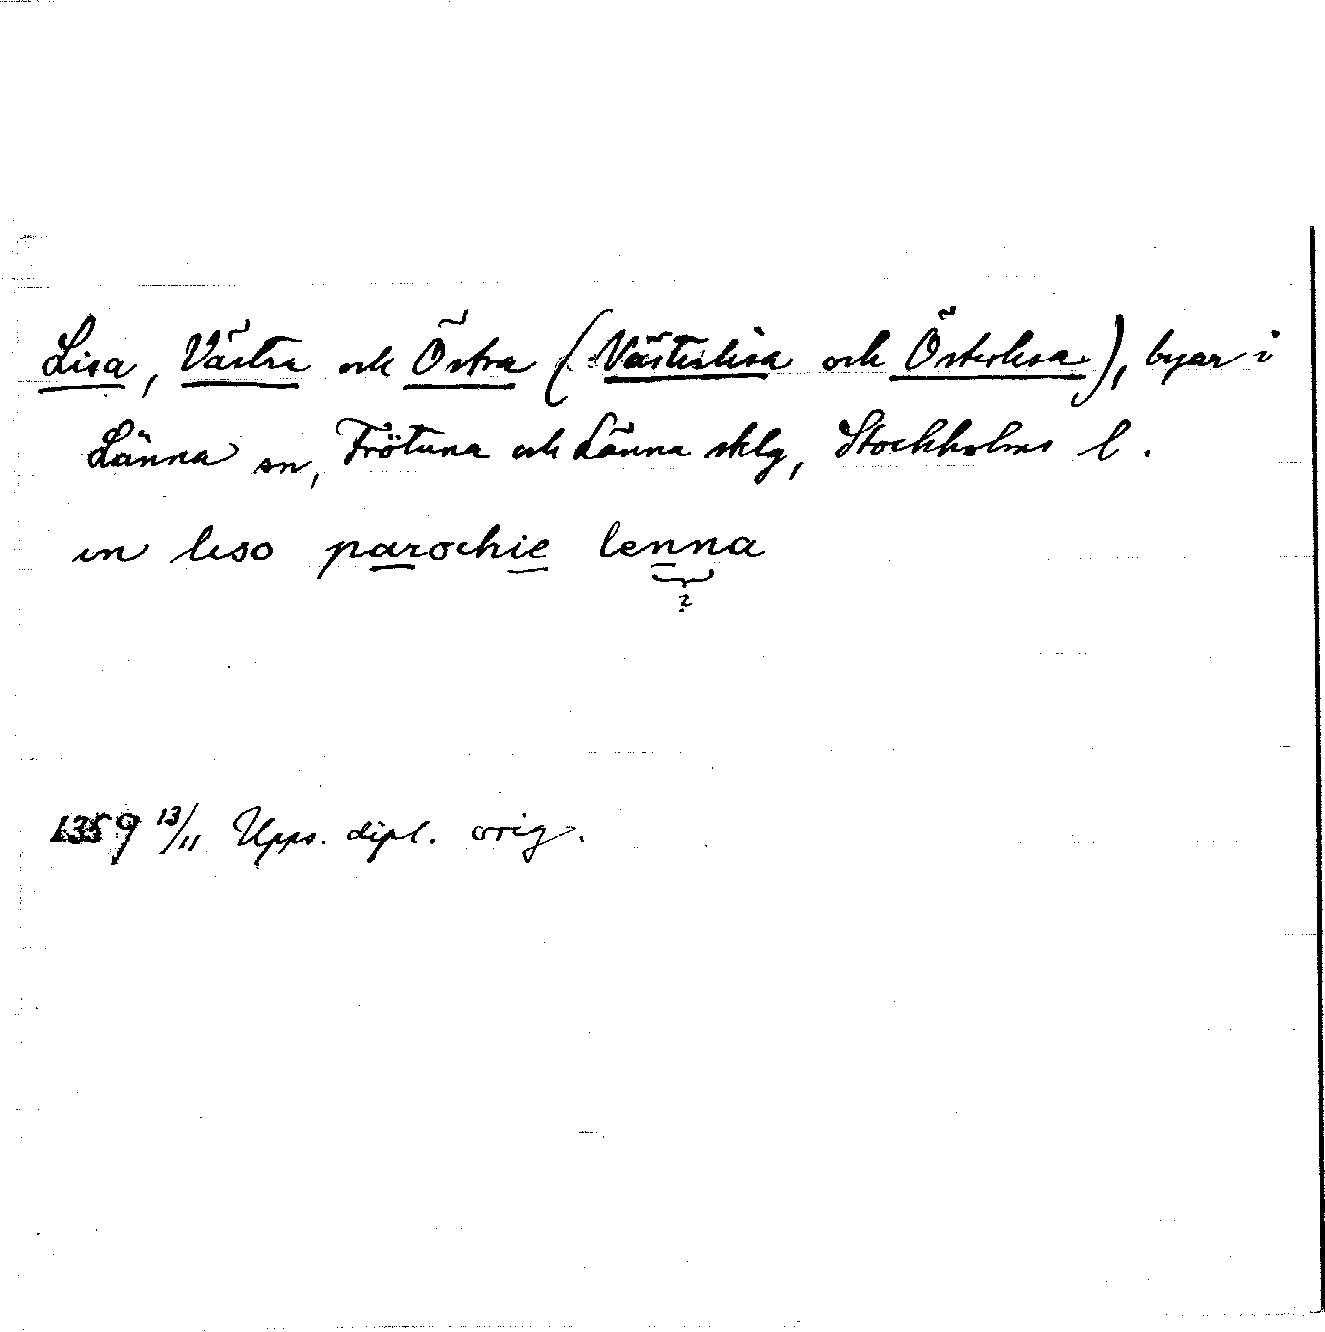 Lisa, Västra och Östra (Västerlisa och Österlisa), byar i
Länna sn, Frötuna och Länna sklg, Stockholms l.
in liso parochie lenna
?
1359 13/11 Upps. dipl. orig.